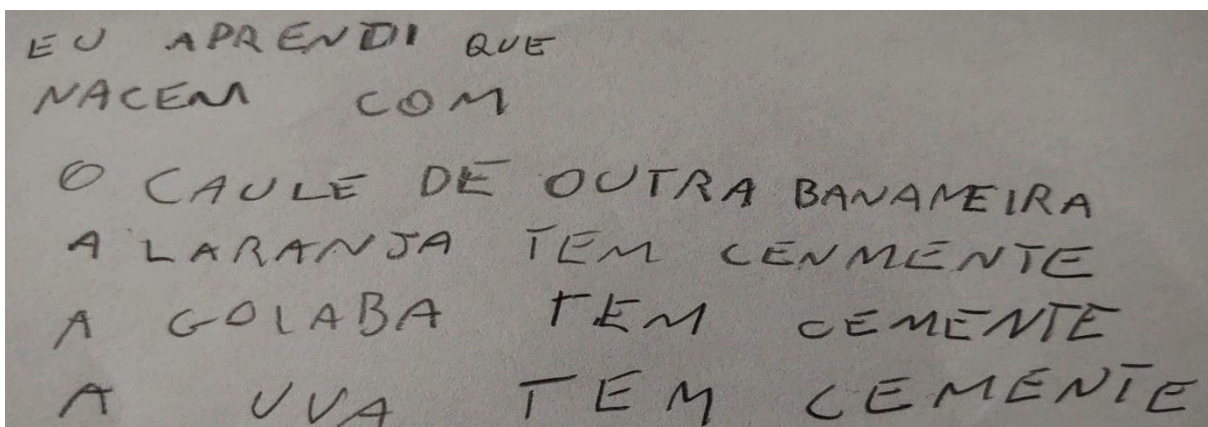 EU APRENDI QUE
NACEM COM
O CAULE DE OUTRA BANAMEIRA
A LARANJA TEM CENMENTE
A GOIABA TEM CEMENTE
A UVA TEM CEMENTE